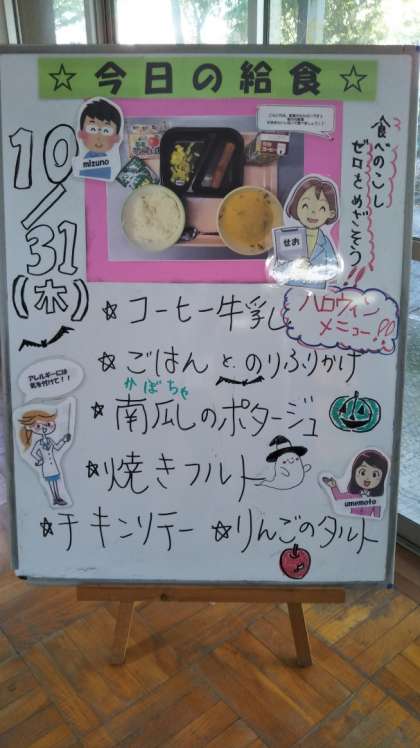 ☆今日の給食☆
mizuno
食べのこし
ゼロをめざそう!!
せお
10/31(木)
☆コーヒー牛乳
ハロウィン
メニュー!!
☆ごはん と のりふりかけ
かぼちゃ
☆南瓜のポタージュ
アレルギーには
気を付けて!!
☆焼きフルト
umemoto
☆チキンソテー ☆りんごのタルト